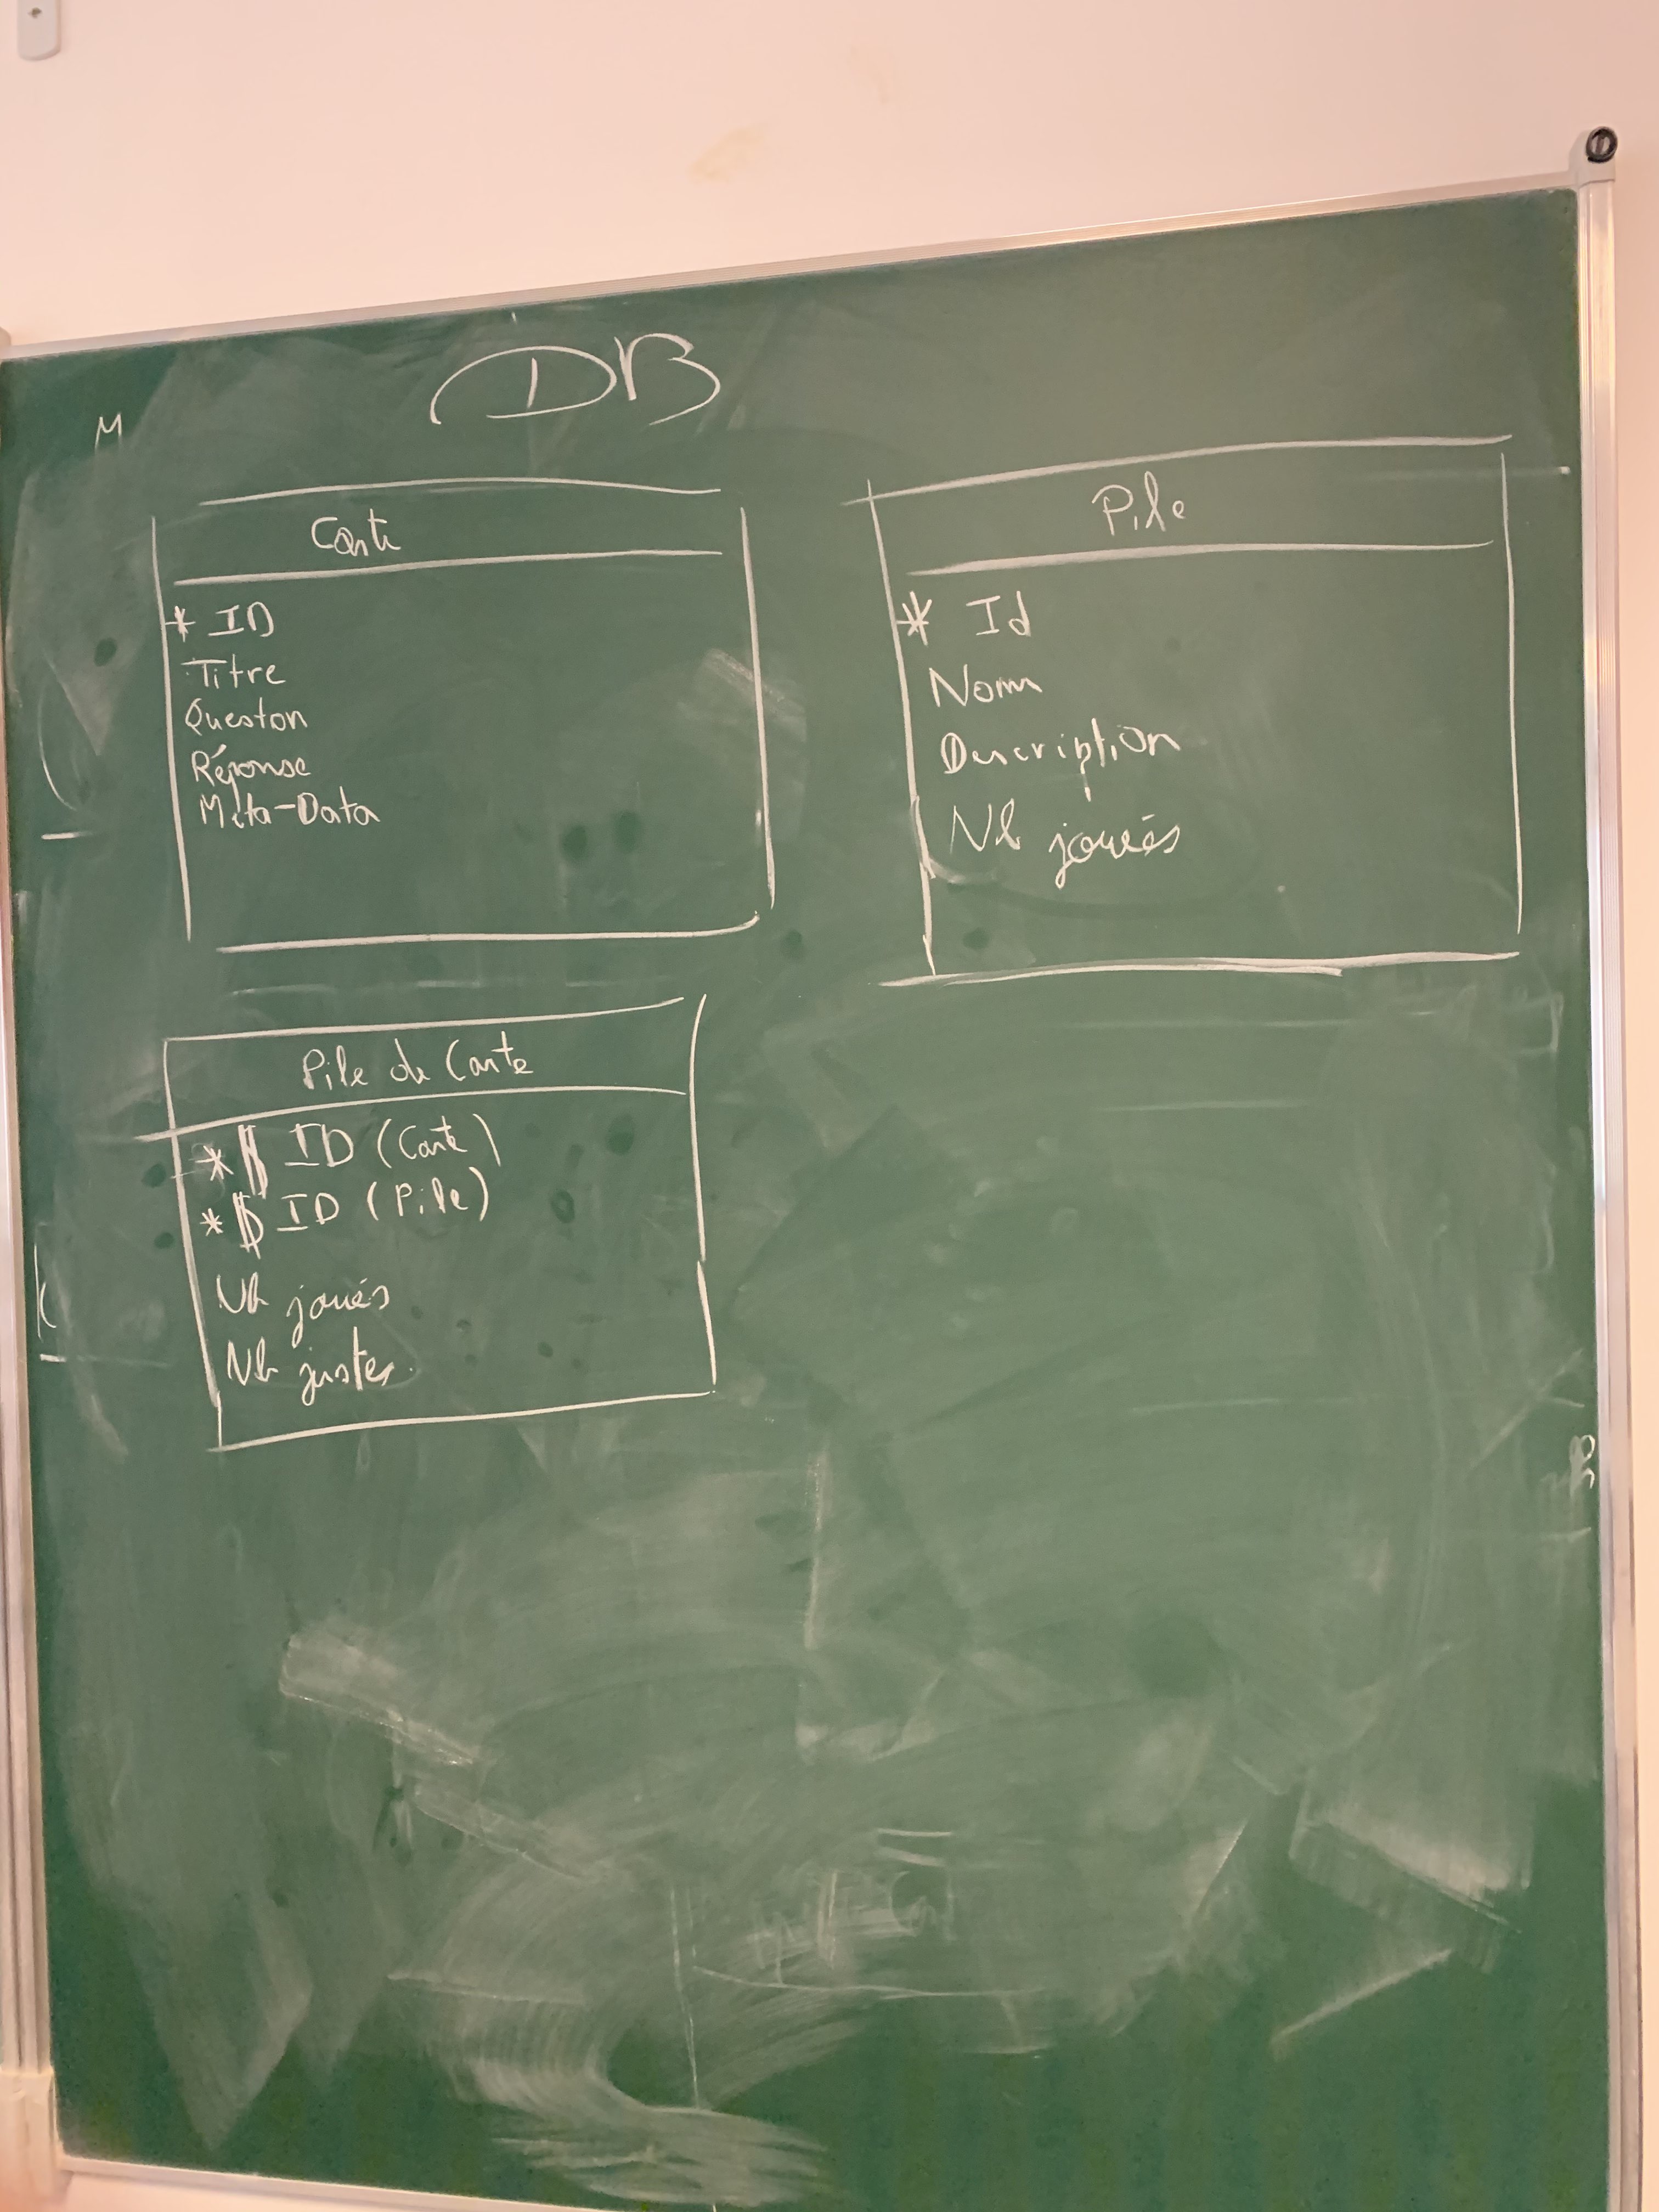 DB
M
Carte
* ID
Titre
Queston
Réponse
Meta-Data
Pile
* Id
Nom
Description
Nb joués
Pile de Carte
*$ ID (Carte)
*$ ID (Pile)
Nb joués
Nb justes